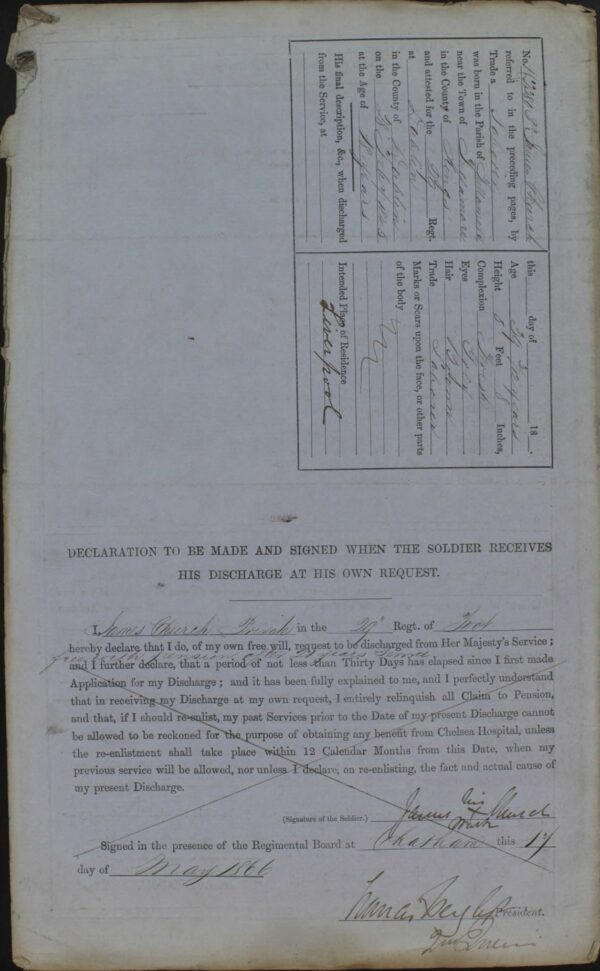 James Church
referred to in the preceding pages, by
Trade a
was born in the Parish of
near the Town of
in the County of Kings
and attested for the 29 Regt.
at Dublin
in the County of Dublin
on the
at the Age of years
His final description, &c., when discharged
from the Service, at
this day of 18 .
Age years
Height 5 Feet 8 Inches,
Complexion Fresh
Eyes Grey
Hair Brown
Trade Laborer
Marks or Scars upon the face, or other parts
of the body
Intended Place of Residence
Liverpool
DECLARATION TO BE MADE AND SIGNED WHEN THE SOLDIER RECEIVES
HIS DISCHARGE AT HIS OWN REQUEST.
I, James Church Private in the 29th Regt. of Foot
hereby declare that I do, of my own free will, request to be discharged from Her Majesty's Service;
free with pension
and I further declare, that a period of not less than Thirty Days has elapsed since I first made
Application for my Discharge; and it has been fully explained to me, and I perfectly understand
that in receiving my Discharge at my own request, I entirely relinquish all Claim to Pension,
and that, if I should re-enlist, my past Services prior to the Date of my present Discharge cannot
be allowed to be reckoned for the purpose of obtaining any benefit from Chelsea Hospital, unless
the re-enlistment shall take place within 12 Calendar Months from this Date, when my
previous service will be allowed, nor unless I declare, on re-enlisting, the fact and actual cause of
my present Discharge.
(Signature of the Soldier.) James his x mark Church
Signed in the presence of the Regimental Board at Chatham this 17
day of May 1866
President.